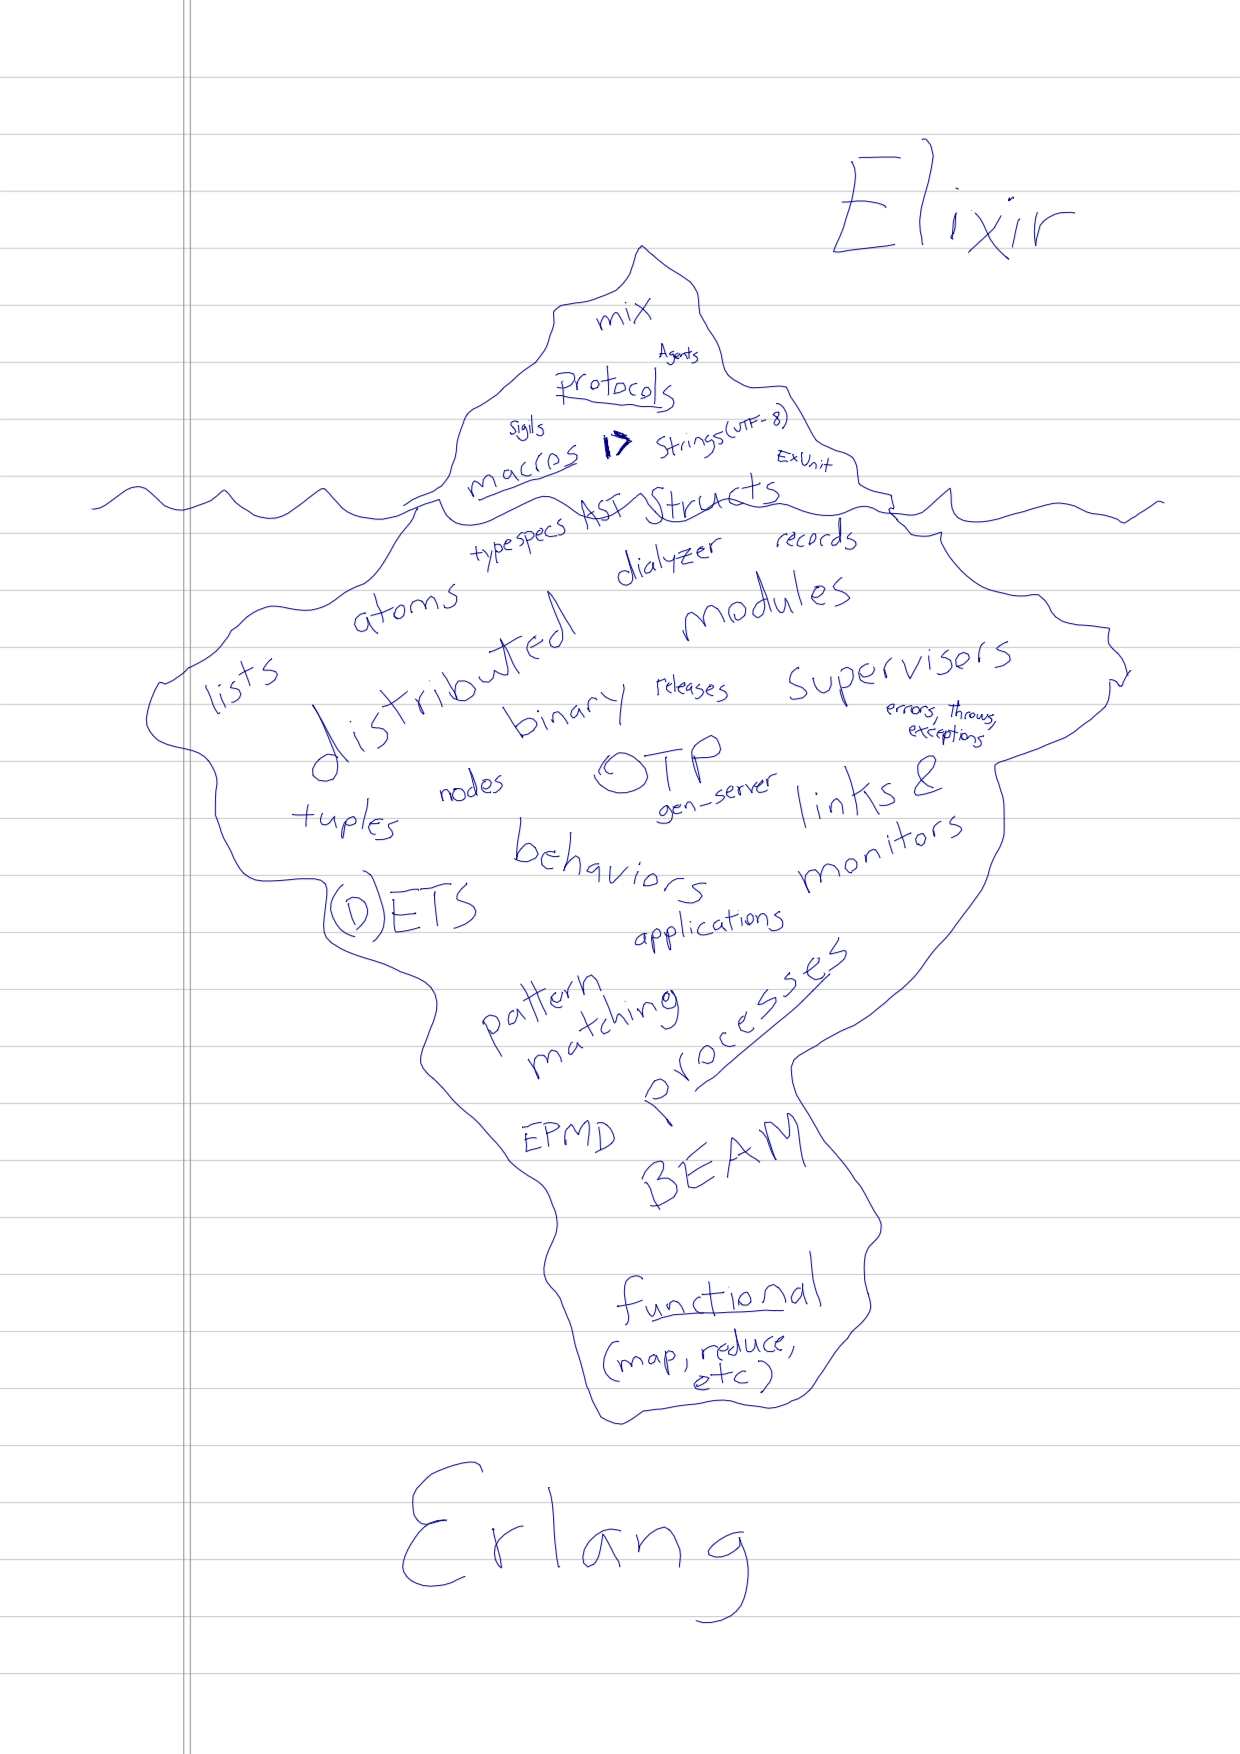 Elixir
mix
Agents
protocols
Sigils
macros |> Strings (UTF-8)
ExUnit
AST Structs
typespecs
dialyzer
records
atoms
modules
lists
distributed
binary
releases
supervisors
errors, throws,
exceptions
nodes
OTP
gen_server
links &
monitors
tuples
behaviors
(D)ETS
applications
pattern
matching
processes
EPMD
BEAM
functional
(map, reduce,
etc)
Erlang